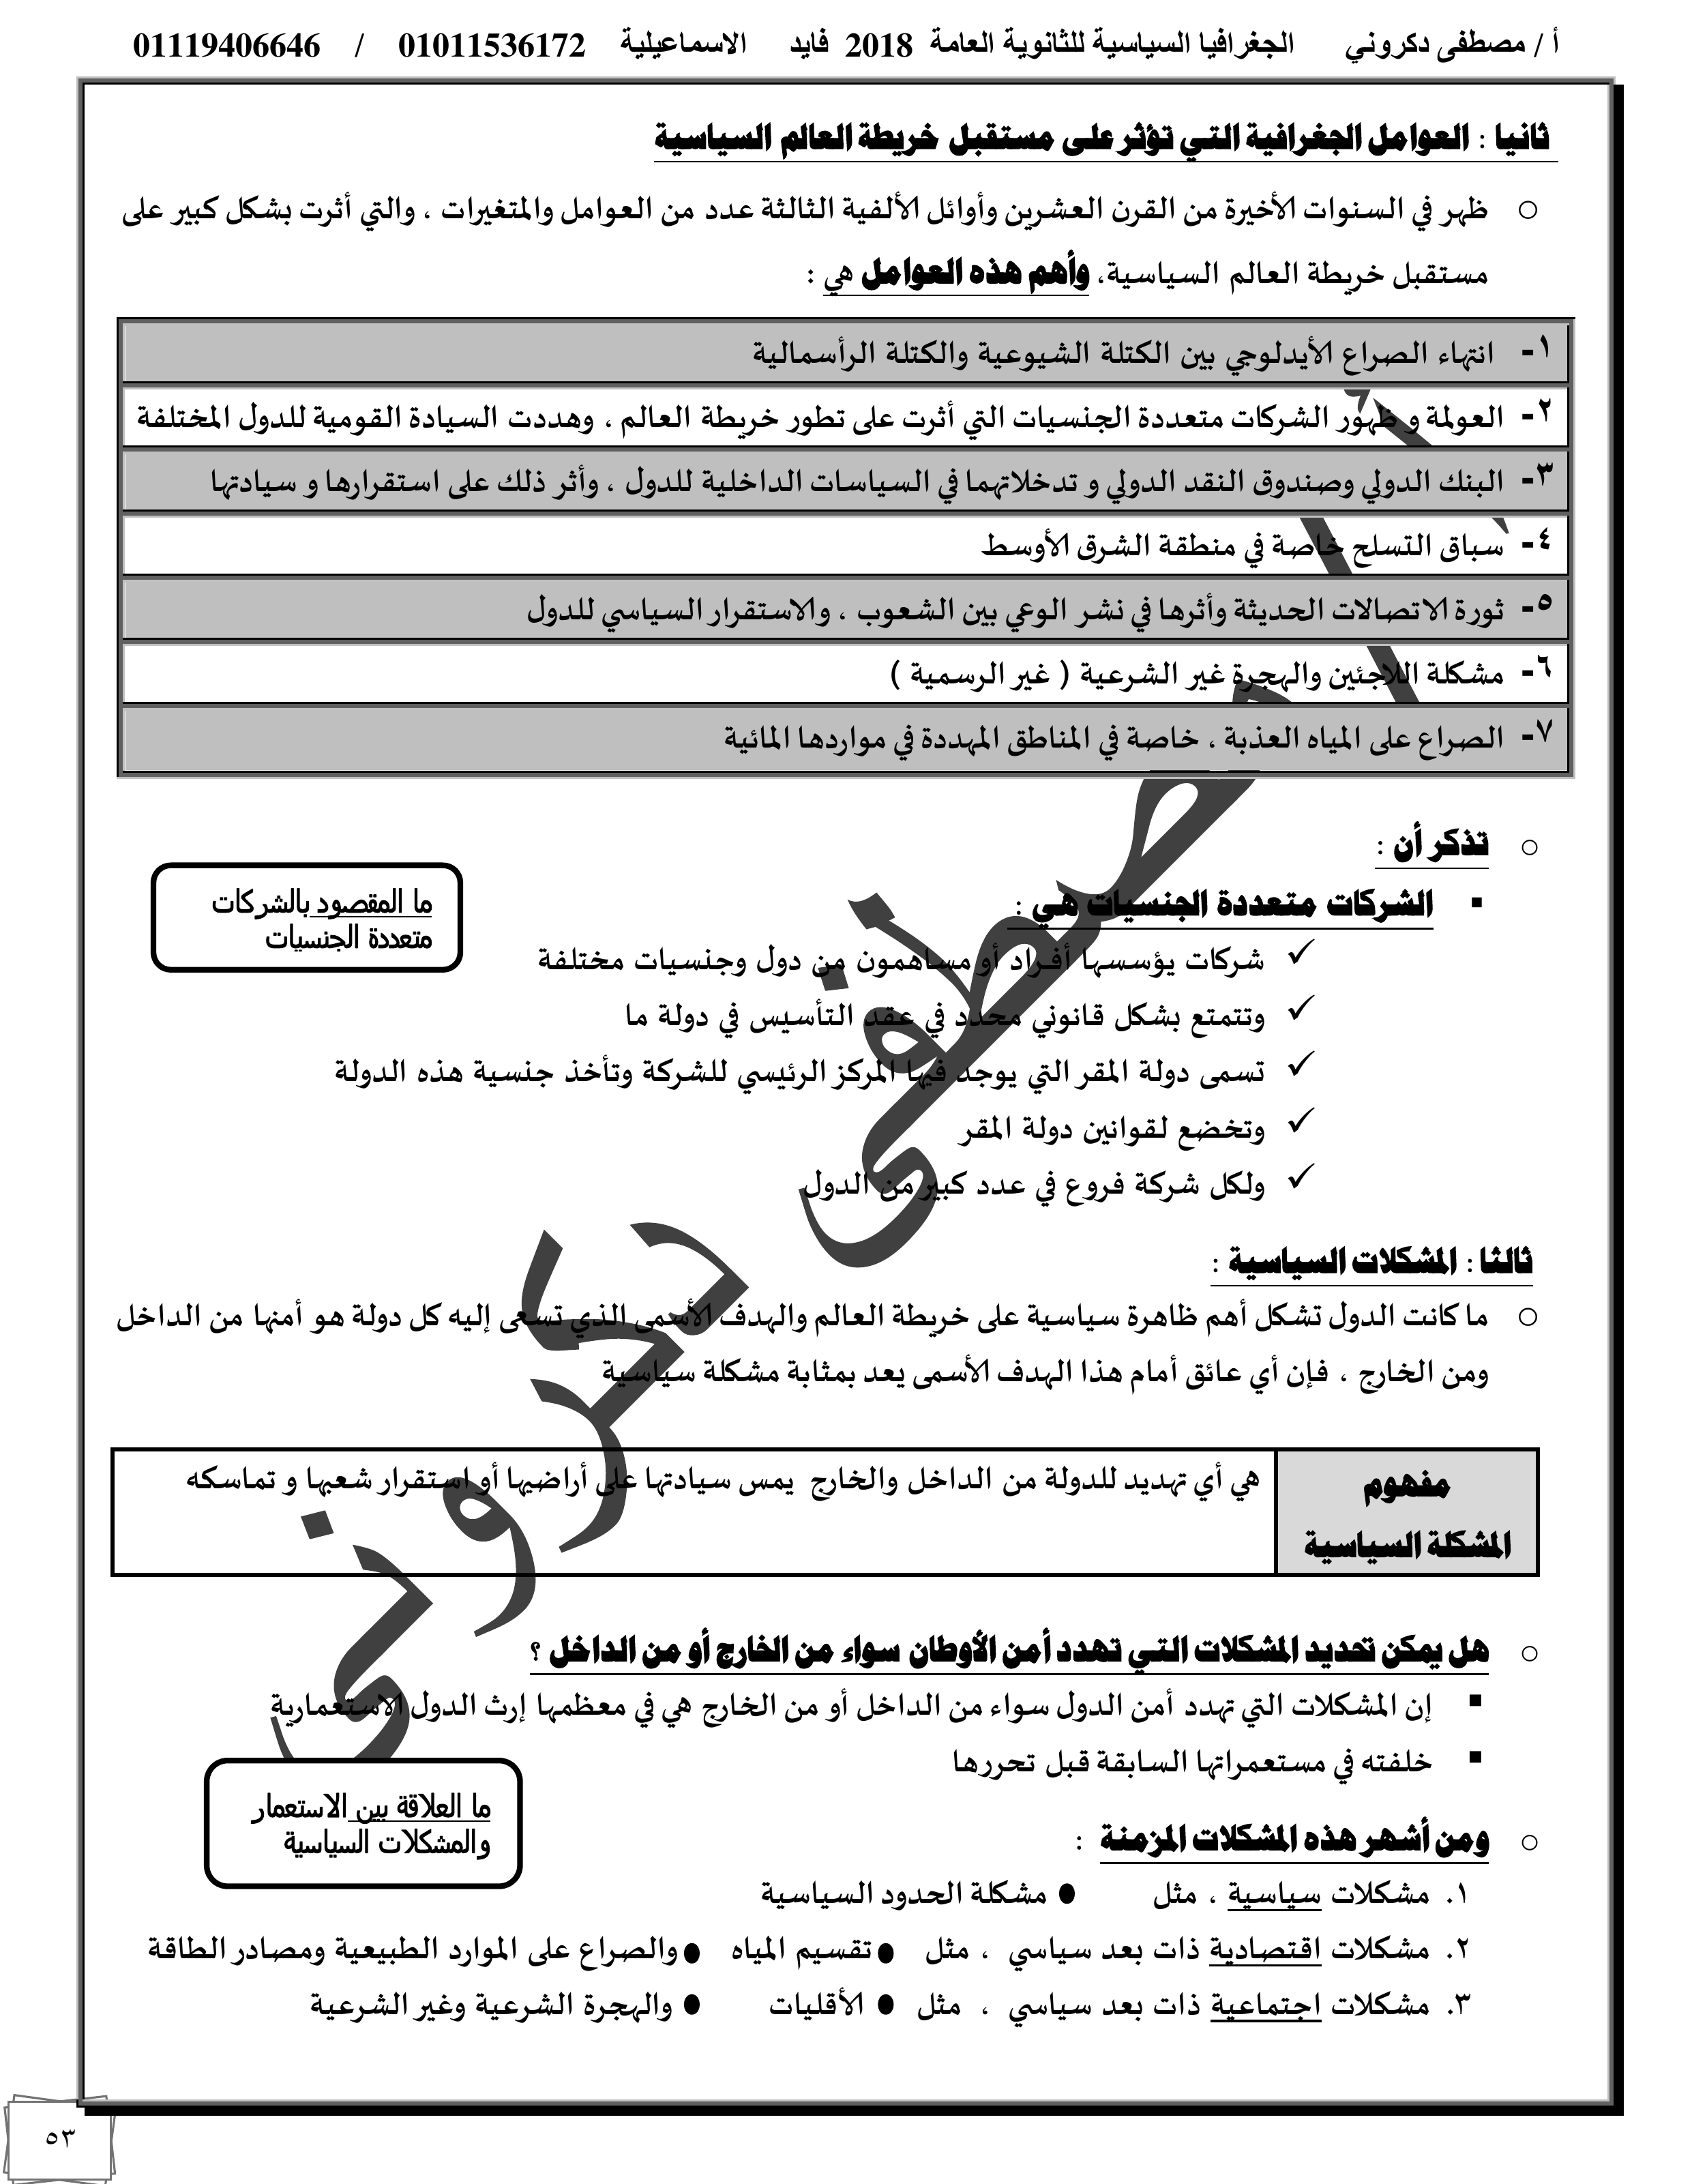 أ / مصطفى دكروني الجغرافيا السياسية للثانوية العامة 2018 فايد الاسماعيلية 01011536172 / 01119406646
ثانيا : العوامل الجغرافية التي تؤثر على مستقبل خريطة العالم السياسية
ظهر في السنوات الأخيرة من القرن العشرين وأوائل الألفية الثالثة عدد من العوامل والمتغيرات ، والتي أثرت بشكل كبير على
مستقبل خريطة العالم السياسية، وأهم هذه العوامل هي :
١- انتهاء الصراع الأيدلوجي بين الكتلة الشيوعية والكتلة الرأسمالية
٢- العولمة و ظهور الشركات متعددة الجنسيات التي أثرت على تطور خريطة العالم ، وهددت السيادة القومية للدول المختلفة
٣- البنك الدولي وصندوق النقد الدولي و تدخلاتهما في السياسات الداخلية للدول ، وأثر ذلك على استقرارها و سيادتها
٤- سباق التسلح خاصة في منطقة الشرق الأوسط
٥- ثورة الاتصالات الحديثة وأثرها في نشر الوعي بين الشعوب ، والاستقرار السياسي للدول
٦- مشكلة اللاجئين والهجرة غير الشرعية ( غير الرسمية )
٧- الصراع على المياه العذبة ، خاصة في المناطق المهددة في مواردها المائية
تذكر أن :
الشركات متعددة الجنسيات هي :
ما المقصود بالشركات
متعددة الجنسيات
✓ شركات يؤسسها أفراد أو مساهمون من دول وجنسيات مختلفة
✓ وتتمتع بشكل قانوني محدد في عقد التأسيس في دولة ما
✓ تسمى دولة المقر التي يوجد فيها المركز الرئيسي للشركة وتأخذ جنسية هذه الدولة
✓ وتخضع لقوانين دولة المقر
✓ ولكل شركة فروع في عدد كبير من الدول
ثالثا : المشكلات السياسية :
ما كانت الدول تشكل أهم ظاهرة سياسية على خريطة العالم والهدف الأسمى الذي تسعى إليه كل دولة هو أمنها من الداخل
ومن الخارج ، فإن أي عائق أمام هذا الهدف الأسمى يعد بمثابة مشكلة سياسية
مفهوم
المشكلة السياسية
هي أي تهديد للدولة من الداخل والخارج يمس سيادتها على أراضيها أو استقرار شعبها و تماسكه
هل يمكن تحديد المشكلات التي تهدد أمن الأوطان سواء من الخارج أو من الداخل ؟
إن المشكلات التي تهدد أمن الدول سواء من الداخل أو من الخارج هي في معظمها إرث الدول الاستعمارية
خلفته في مستعمراتها السابقة قبل تحررها
ما العلاقة بين الاستعمار
والمشكلات السياسية
ومن أشهر هذه المشكلات المزمنة :
١. مشكلات سياسية ، مثل ● مشكلة الحدود السياسية
٢. مشكلات اقتصادية ذات بعد سياسي ، مثل ● تقسيم المياه ● والصراع على الموارد الطبيعية ومصادر الطاقة
٣. مشكلات اجتماعية ذات بعد سياسي ، مثل ● الأقليات ● والهجرة الشرعية وغير الشرعية
٥٣
أ / مصطفى دكروني